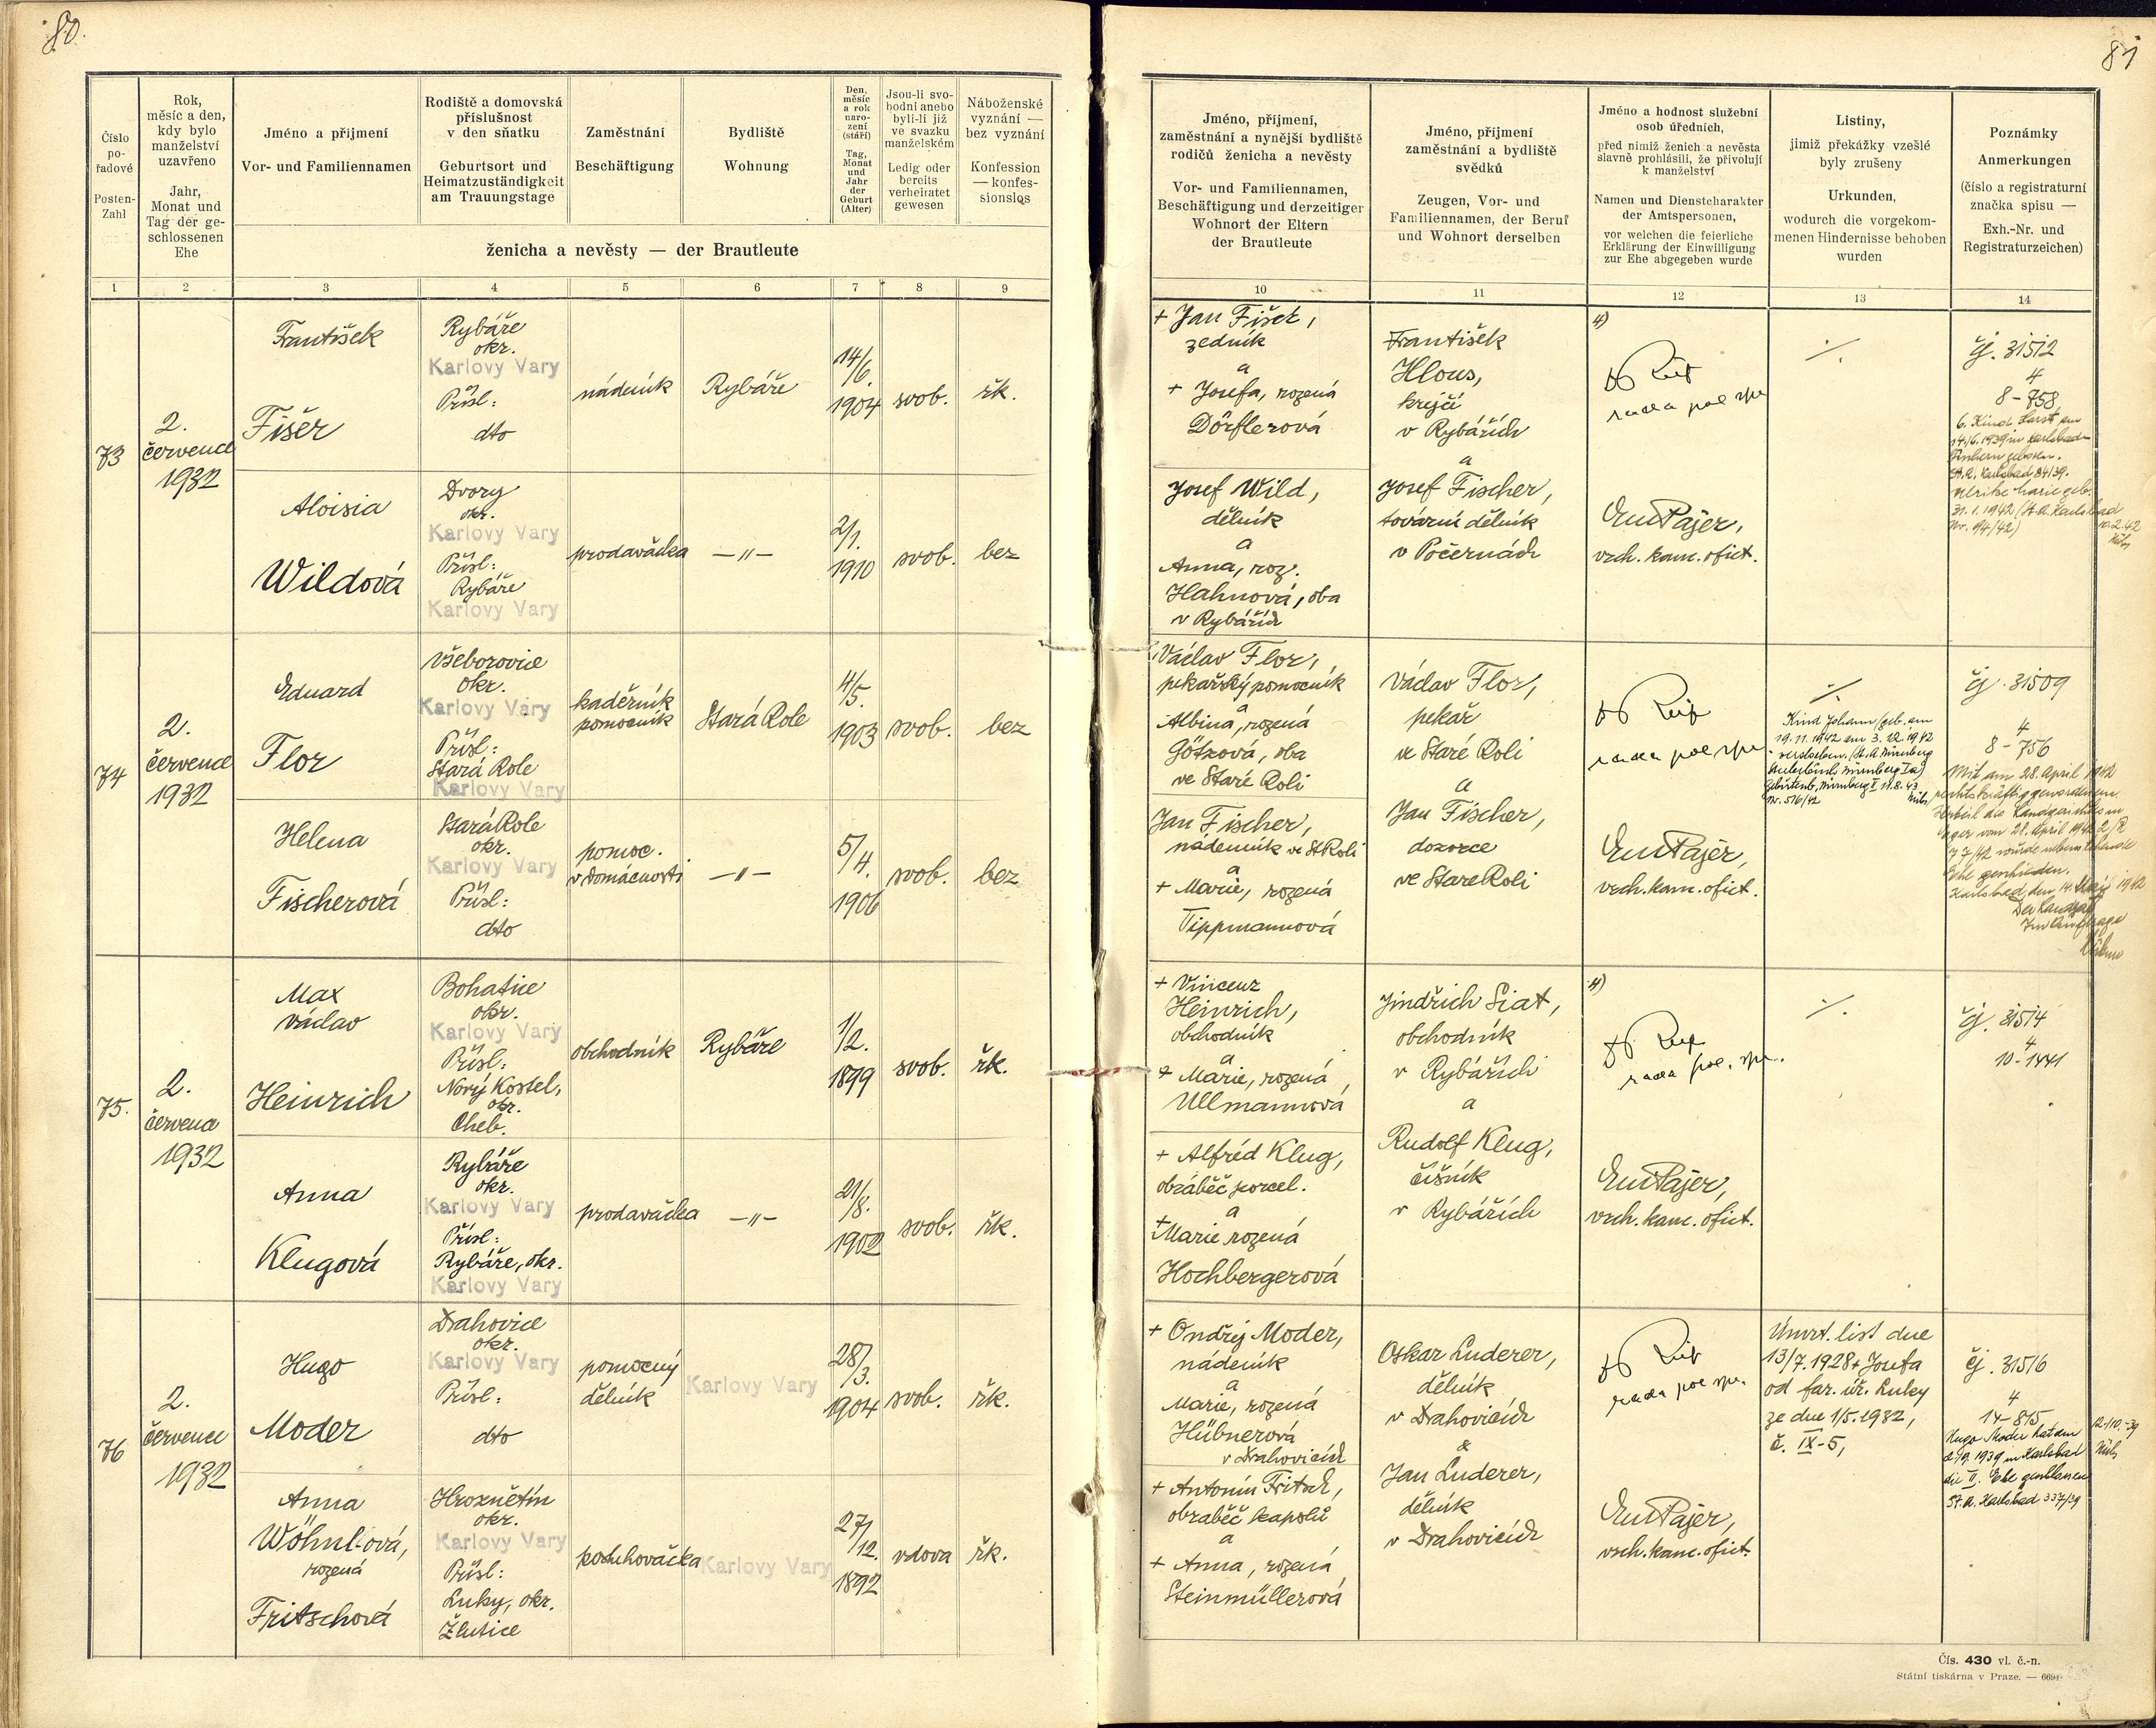 80.
81
Číslo
po-
řadové
Posten-
Zahl
Rok,
měsíc a den,
kdy bylo
manželství
uzavřeno
Jahr,
Monat und
Tag der ge-
schlossenen
Ehe
Jméno a příjmení
Vor- und Familiennamen
Rodiště a domovská
příslušnost
v den sňatku
Geburtsort und
Heimatzuständigkeit
am Trauungstage
Zaměstnání
Beschäftigung
Bydliště
Wohnung
Den,
měsíc
a rok
naro-
zení
(stáří)
Tag,
Monat
und
Jahr
der
Geburt
(Alter)
Jsou-li svo-
bodni anebo
byli-li již
ve svazku
manželském
Ledig oder
bereits
verheiratet
gewesen
Náboženské
vyznání —
bez vyznání
Konfession
— konfes-
sionslos
ženicha a nevěsty — der Brautleute
Jméno, příjmení,
zaměstnání a nynější bydliště
rodičů ženicha a nevěsty
Vor- und Familiennamen,
Beschäftigung und derzeitiger
Wohnort der Eltern
der Brautleute
Jméno, příjmení
zaměstnání a bydliště
svědků
Zeugen, Vor- und
Familiennamen, der Beruf
und Wohnort derselben
Jméno a hodnost služební
osob úředních,
před nimiž ženich a nevěsta
slavně prohlásili, že přivolují
k manželství
Namen und Dienstcharakter
der Amtspersonen,
vor welchen die feierliche
Erklärung der Einwilligung
zur Ehe abgegeben wurde
Listiny,
jimiž překážky vzešlé
byly zrušeny
Urkunden,
wodurch die vorgekom-
menen Hindernisse behoben
wurden
Poznámky
Anmerkungen
(číslo a registraturní
značka spisu —
Exh.-Nr. und
Registraturzeichen)
1 2 3 4 5 6 7 8 9 10 11 12 13 14
73
2.
července
1932
František
Fišer
Rybáře
okr.
Karlovy Vary
Přísl:
dto
nádeník
Rybáře
14/6.
1904
svob.
řk.
Aloisia
Wildová
Dvory
okr.
Karlovy Vary
Přísl:
Rybáře
Karlovy Vary
prodavačka
—"—
2/1.
1910
svob.
bez
+ Jan Fišer,
zedník
a
+ Josefa, rozená
Dörflerová
Josef Wild,
dělník
a
Anna, roz.
Hahnová, oba
v Rybářích
František
Hlous,
krejčí
v Rybářích
a
Josef Fischer,
tovární dělník
v Počernách
4)
rada pol. spr.
Em Pajer,
vrch. kanc. ofict.
./.
čj. 31512
4
8-758
6. Kind Horst am
14./6.1939 in Karlsbad-
Fischern geboren.
St.A. Karlsbad 84/39.
Ulrike Marie geb.
31.1.1942 (St.A. Karlsbad
Nr. 94/42)
10.2.42
74
2.
července
1932
Eduard
Flor
Všeborovice
okr.
Karlovy Vary
Přísl:
Stará Role
Karlovy Vary
kadeřník
pomocník
Stará Role
4/5.
1903
svob.
bez
Helena
Fischerová
Stará Role
okr.
Karlovy Vary
Přísl:
dto
pomoc.
v domácnosti
—"—
5/4.
1906
svob.
bez
Václav Flor,
pekařský pomocník
a
Albina, rozená
Götzová, oba
ve Staré Roli
Jan Fischer,
nádenník ve St Roli
a
+ Marie, rozená
Tippmannová
Václav Flor,
pekař
ve Staré Roli
a
Jan Fischer,
dozorce
ve Stare Roli
rada pol. spr.
Em Pajer,
vrch. kanc. ofict.
./.
Kind Johann (geb. am
19.11.1942 am 3.12.1942
verstorben. (St.A. Nürnberg
Nürnberg II 11.8.43
Nr. 516/42
čj. 31509
4
8-756
Mit am 28. April 1942
rechtskräftig gewordenem
Urteil des Landgerichtes in
Eger vom 28. April 1942 2/R
77/42 wurde nebenstehende
Ehe geschieden.
Karlsbad, den 14. Mai 1942
Der Landrat
Im Auftrage
75.
2.
července
1932
Max
Václav
Heinrich
Bohatice
okr.
Karlovy Vary
Přísl:
Nový Kostel,
okr.
Cheb.
obchodník
Rybáře
1/2.
1899
svob.
řk.
Anna
Klugová
Rybáře
okr.
Karlovy Vary
Přísl:
Rybáře, okr.
Karlovy Vary
prodavačka
—"—
21/8.
1902
svob.
řk.
+ Vincenz
Heinrich,
obchodník
a
+ Marie, rozená
Ullmannová
+ Alfréd Klug,
obráběč porcel.
a
+ Marie rozená
Hochbergerová
Jindřich Siat,
obchodník
v Rybářích
a
Rudolf Klug,
číšník
v Rybářích
4)
rada pol. spr.
Em Pajer,
vrch. kanc. ofict.
./.
čj. 31514
4
10-1441
76
2.
července
1932
Hugo
Moder
Drahovice
okr.
Karlovy Vary
Přísl:
dto
pomocný
dělník
Karlovy Vary
28/3.
1904
svob.
řk.
Anna
Wöhnl-ová,
rozená
Fritschová
Hroznětín
okr.
Karlovy Vary
Přísl:
Luky, okr.
Žlutice
posluhovačka
Karlovy Vary
27/12.
1892
vdova
řk.
+ Ondřej Moder,
nádeník
a
Marie, rozená
Hübnerová
v Drahovicích
+ Antonín Fritsch,
obráběč kapslů
a
+ Anna, rozená
Steinmüllerová
Oskar Luderer,
dělník
v Drahovicích
&
Jan Luderer,
dělník
v Drahovicích
rada pol. spr.
Em Pajer,
vrch. kanc. ofict.
Úmrt. list dne
13/7.1928 + Josefa
od far. úř. Luky
ze dne 1/5.1932,
č. IX-5,
čj. 31516
4
14-815
Hugo Moder hat am
1939 in Karlsbad
die II. Ehe geschlossen
St.A. Karlsbad 337/39
12./10.-39
Čís. 430 vl. č.-n.
Státní tiskárna v Praze. —